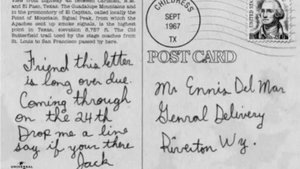 and El Paso, Texas. The Guadalupe Mountains and
in the promontory of El Capitan, called locally the
Point of Mountain, Signal Peak, from which the
Apaches sent up smoke signals, is the highest
point in Texas, elevation 8,757 ft. The Old
Butterfield trail used by the stage coaches from
St. Louis to San Francisco passed by here.
Friend this letter
is long over due.
Coming through
on the 24th
Drop me a line
say if your there
Jack
UNIVERSAL
CHILDRESS
SEPT
1967
TX
POST CARD
Mr Ennis Del Mar
Genral Delivery
Riverton Wy.